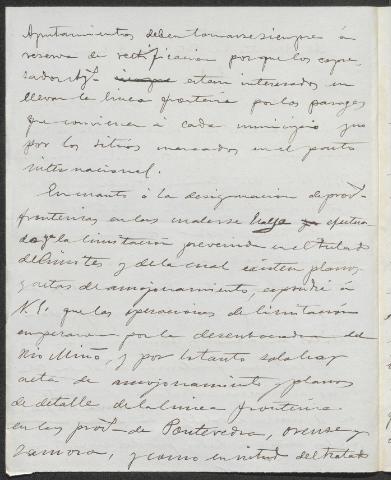 Ayuntamientos deben tomarse siempre á
reserva de rectificacion porque los expre
sados Ayts. estan interesados en
llevar la linea fronteriza por los parages
que convienen á cada municipio y no
por los sitios marcados en el pacto
internacional.
En cuanto á la designacion de provs
fronterizas en las cuales se haya efectua
do ya la limitación prevenida en el Tratado
de limites y de la cual existen planos
y actas de amojonamiento, expondré á
V. E. que las operaciones de limitación
empezaron por la desembocadura del
Rio Miño, y por lo tanto solo hay
acta de amojonamiento y planos
de detalle de la linea fronteriza
en las provs de Pontevedra, Orense y
Zamora, y como en virtud del tratado